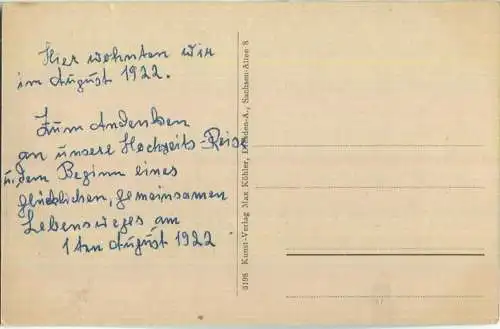 Hier wohnten wir
im August 1922.
Zum Andenken
an unsere Hochzeits-Reise
u. dem Beginn eines
glücklichen, gemeinsamen
Lebensweges am
1ten August 1922
0198 Kunst-Verlag Max Köhler, Dresden-A., Sachsen-Allee 8